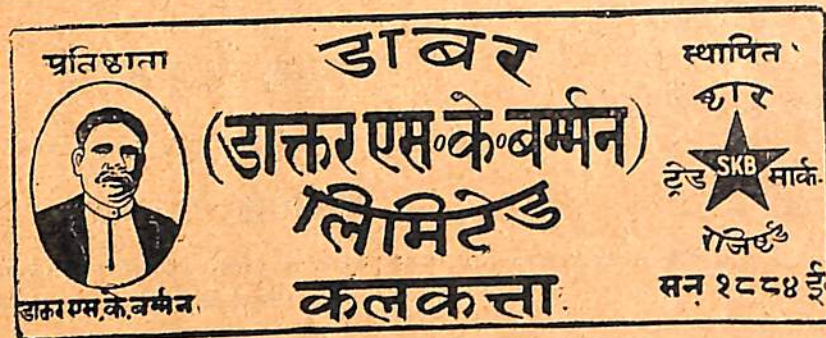 प्रतिष्ठाता
डाक्तर एस.के.बर्म्मन.
डाबर
(डाक्तर एस॰के॰बर्म्मन)
लिमिटेड
कलकत्ता
स्थापित
ष्टार
SKB
ट्रेड मार्क.
रजिष्टर्ड
सन् १८८४ ई॰